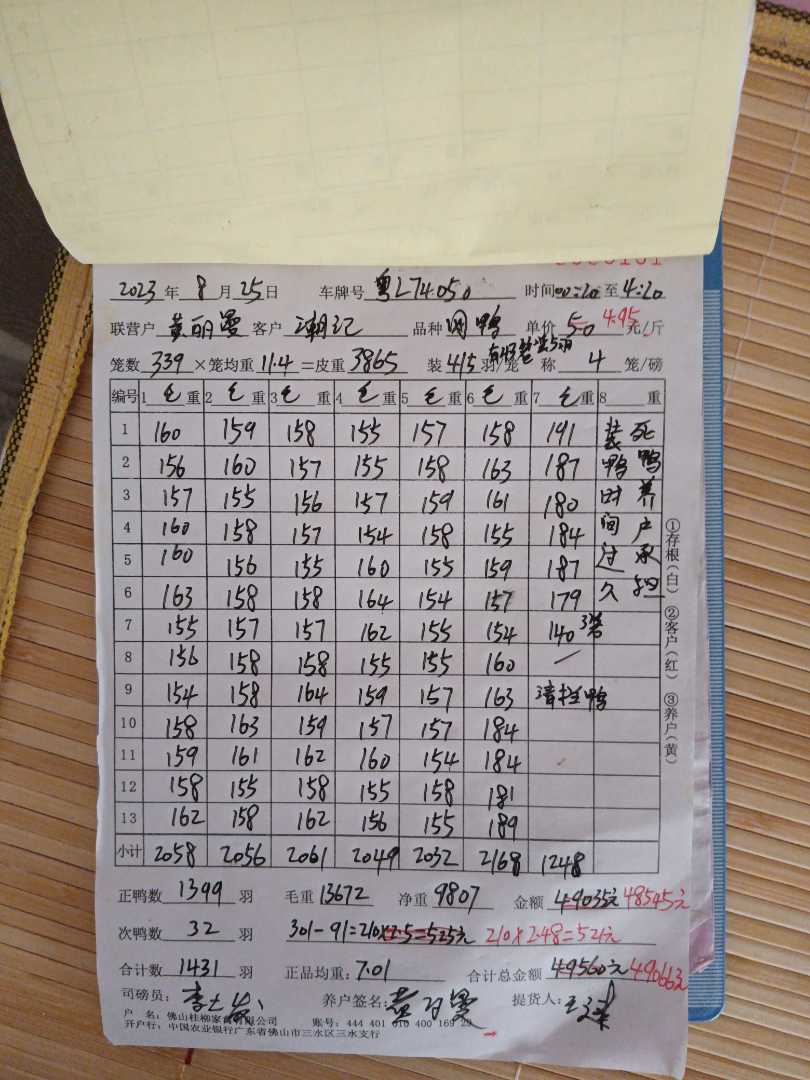 2023 年 8 月 25 日 车牌号 粤L74050 时间 00:20 至 4:20
联营户 黄丽曼 客户 潮记 品种 肉鸭 单价 5.0 4.95 元/斤
笼数 339 ×笼均重 11.4 =皮重 3865 装 4/5 羽/笼 称 4 笼/磅
编号 1 毛 重 2 毛 重 3 毛 重 4 毛 重 5 毛 重 6 毛 重 7 毛 重 8 重
1 160 159 158 155 157 158 191 装 死
2 156 160 157 155 158 163 187 鸭 鸭
3 157 155 156 157 159 161 180 时 养
4 160 158 157 154 158 155 184 间 户
5 160 156 155 160 155 159 187 过 承
6 163 158 158 164 154 157 179 久 担
7 155 157 157 162 155 154 140 3笼
8 156 158 158 155 155 160 /
9 154 158 164 159 157 163 清拦鸭
10 158 163 159 157 157 184
11 159 161 162 160 154 184
12 158 155 158 155 158 181
13 162 158 162 156 155 189
小计 2058 2056 2061 2049 2032 2168 1248
①存根(白) ②客户(红) ③养户(黄)
正鸭数 1399 羽 毛重 13672 净重 9807 金额 49035元 48545元
次鸭数 32 羽 301-91=210×2.5=525元 210×2.48=521元
合计数 1431 羽 正品均重: 7.01 合计总金额 49560元 49066元
司磅员: 李 养户签名: 黄丽曼 提货人: 王
户 名: 佛山桂柳家禽有限公司 账号: 444 401 010 400 169 29
开户行: 中国农业银行广东省佛山市三水区三水支行